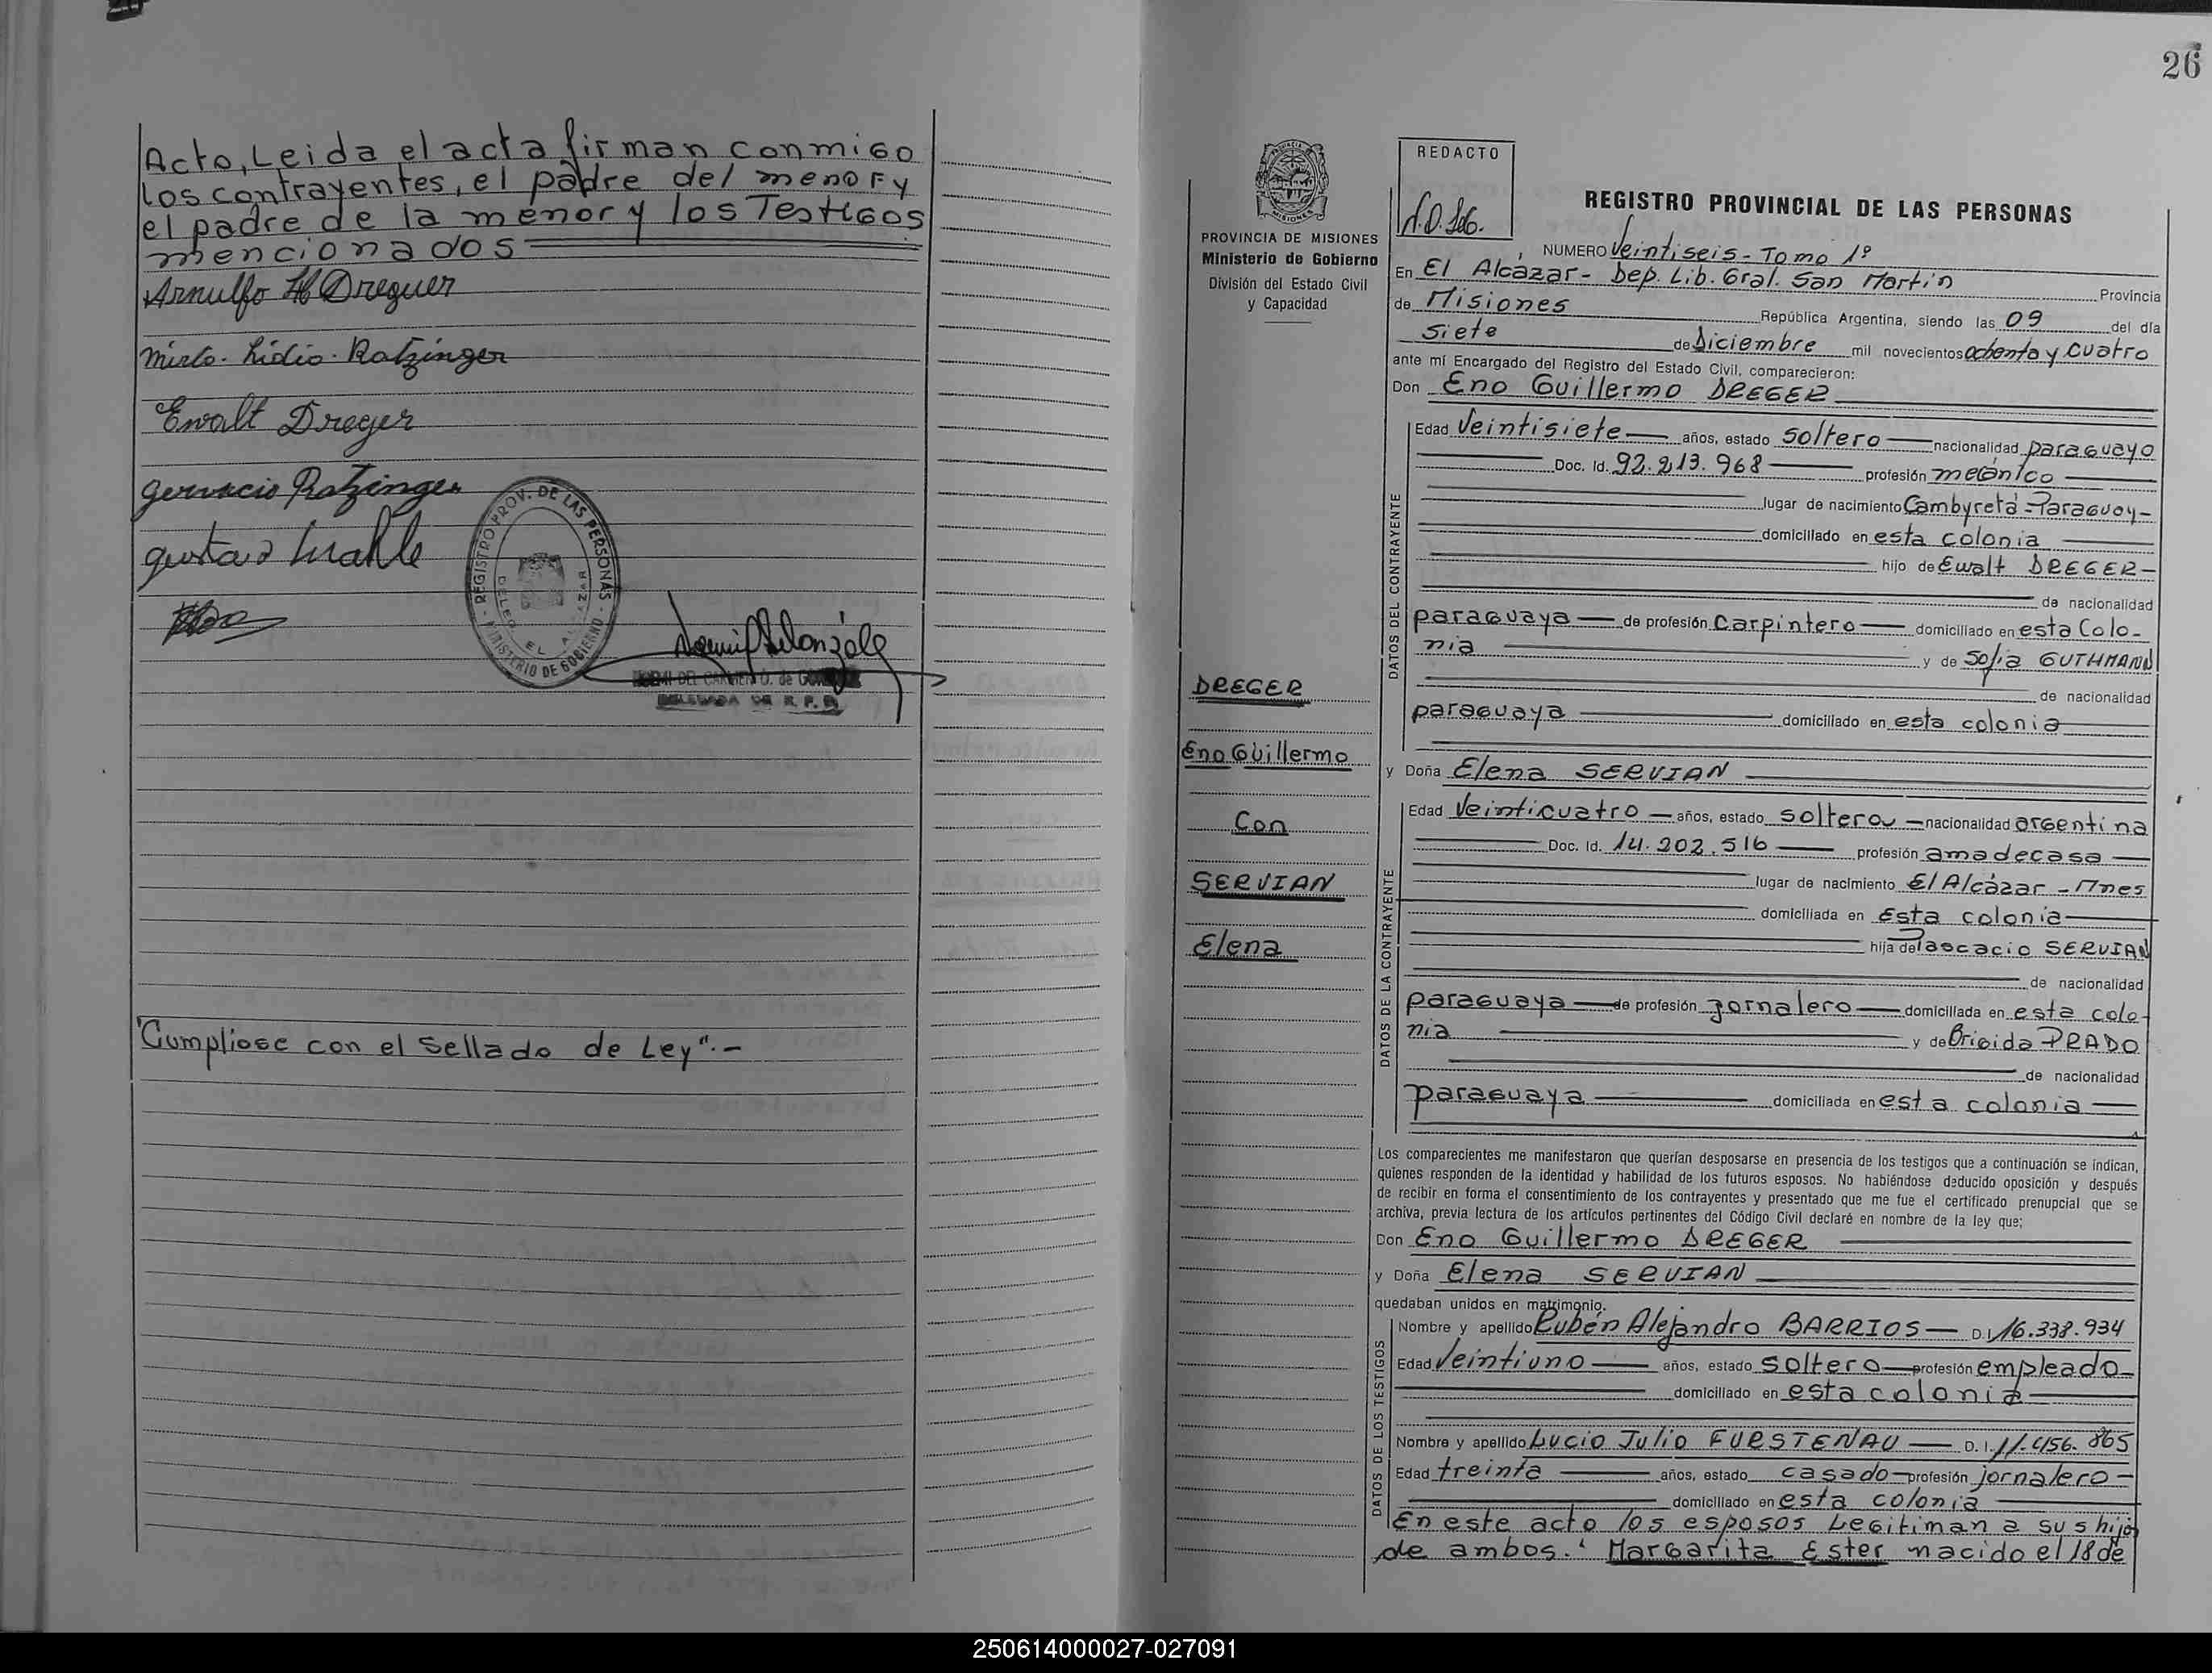 Acto, Leida el acta firman conmigo
los contrayentes, el padre del menor y
el padre de la menor y los Testigos
mencionados
Arnulfo H Dreguer
Mirta Lidia Ratzinger
Ewalt Dreger
gervacio Ratzinger
REGISTRO PROV. DE LAS PERSONAS - MINISTERIO DE GOBIERNO
DELEG. EL
DELEGADA DE R. P. P.
"Cumpliose con el sellado de Ley".-
26
PROVINCIA DE MISIONES
Ministerio de Gobierno
División del Estado Civil
y Capacidad
REDACTO
REGISTRO PROVINCIAL DE LAS PERSONAS
NUMERO Veintiseis - Tomo 1º
En El Alcázar - Dep. Lib. Gral. San Martín Provincia
de Misiones República Argentina, siendo las 09 del día
siete de Diciembre mil novecientos ochenta y cuatro
ante mí Encargado del Registro del Estado Civil, comparecieron:
Don Eno Guillermo DREGER
DATOS DEL CONTRAYENTE
Edad Veintisiete años, estado soltero nacionalidad paraguayo
Doc. Id. 92.213.968 profesión mecánico
lugar de nacimiento Cambyretá - Paraguay -
domiciliado en esta colonia
hijo de Ewalt DREGER -
de nacionalidad
paraguaya de profesión Carpintero domiciliado en esta Colo-
nia y de Sofia GUTHMANN
de nacionalidad
paraguaya domiciliado en esta colonia
DREGER
Eno Guillermo
Con
SERVIAN
Elena
y Doña Elena SERVIAN
DATOS DE LA CONTRAYENTE
Edad Veinticuatro años, estado soltera nacionalidad argentina
Doc. Id. 14.202.516 profesión ama de casa
lugar de nacimiento El Alcázar - Mnes
domiciliada en Esta colonia
hija de Pascacio SERVIAN
de nacionalidad
paraguaya de profesión Jornalero domiciliada en esta colo-
nia y de Brigida PRADO
de nacionalidad
paraguaya domiciliada en esta colonia
Los comparecientes me manifestaron que querían desposarse en presencia de los testigos que a continuación se indican,
quienes responden de la identidad y habilidad de los futuros esposos. No habiéndose deducido oposición y después
de recibir en forma el consentimiento de los contrayentes y presentado que me fue el certificado prenupcial que se
archiva, previa lectura de los artículos pertinentes del Código Civil declaré en nombre de la ley que;
Don Eno Guillermo DREGER
y Doña Elena SERVIAN
quedaban unidos en matrimonio.
DATOS DE LOS TESTIGOS
Nombre y apellido Rubén Alejandro BARRIOS D.I. 16.338.934
Edad Veintiuno años, estado soltero profesión empleado
domiciliado en esta colonia
Nombre y apellido Lucio Julio FUESTENAU D. I. 11.456.865
Edad treinta años, estado casado profesión jornalero
domiciliado en esta colonia
En este acto los esposos Legitiman a sus hijos
de ambos. Margarita Ester nacido el 18 de
250614000027-027091